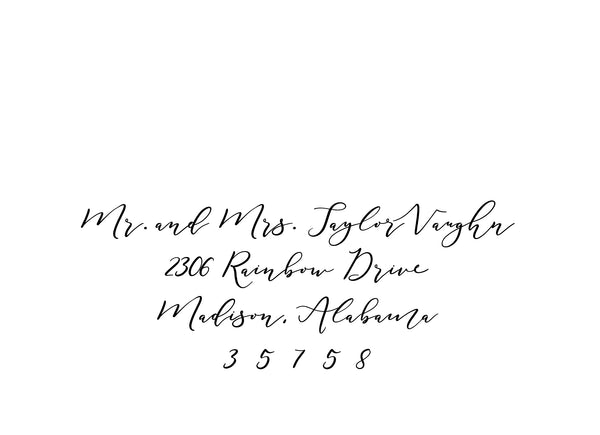 Mr. and Mrs. Taylor Vaughn
2306 Rainbow Drive
Madison, Alabama
35758